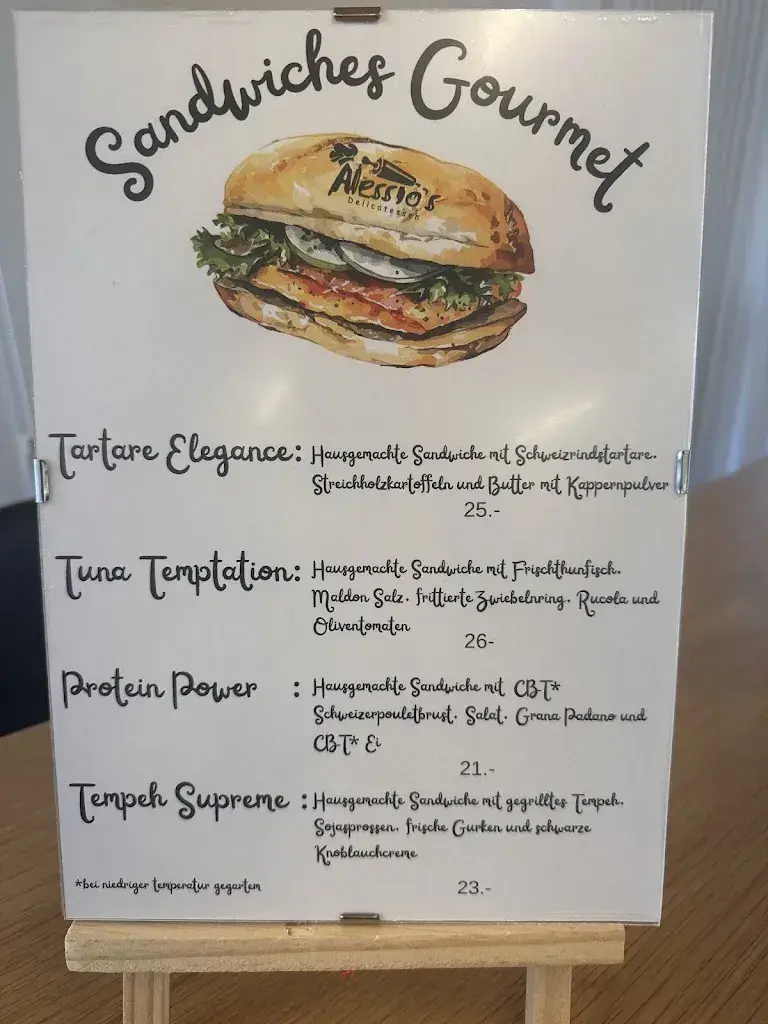 Sandwiches Gourmet
Alessio's
Delicatessen
Tartare Elegance: Hausgemachte Sandwiche mit Schweizrindstartare.
Streichholzkartoffeln und Butter mit Kappernpulver
25.-
Tuna Temptation: Hausgemachte Sandwiche mit Frischthunfisch.
Maldon Salz. frittierte Zwiebelnring. Rucola und
Oliventomaten
26-
Protein Power : Hausgemachte Sandwiche mit CBT*
Schweizerpouletbrust. Salat. Grana Padano und
CBT* Ei
21.-
Tempeh Supreme : Hausgemachte Sandwiche mit gegrilltes Tempeh.
Sojasprossen. frische Gurken und schwarze
Knoblauchcreme
*bei niedriger temperatur gegartem
23.-